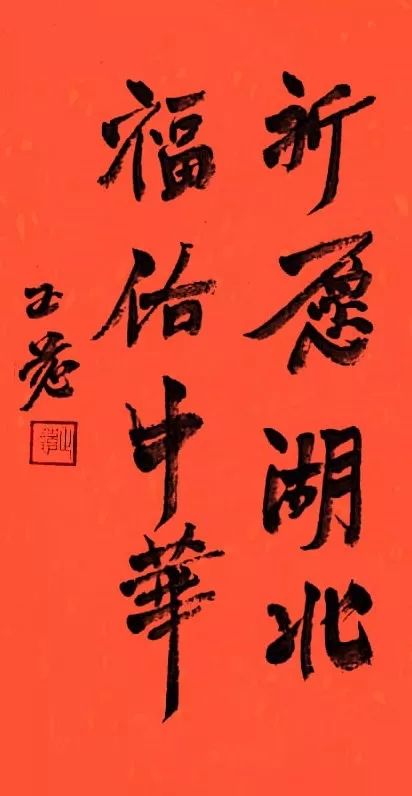 祈愿湖北
福佑中華